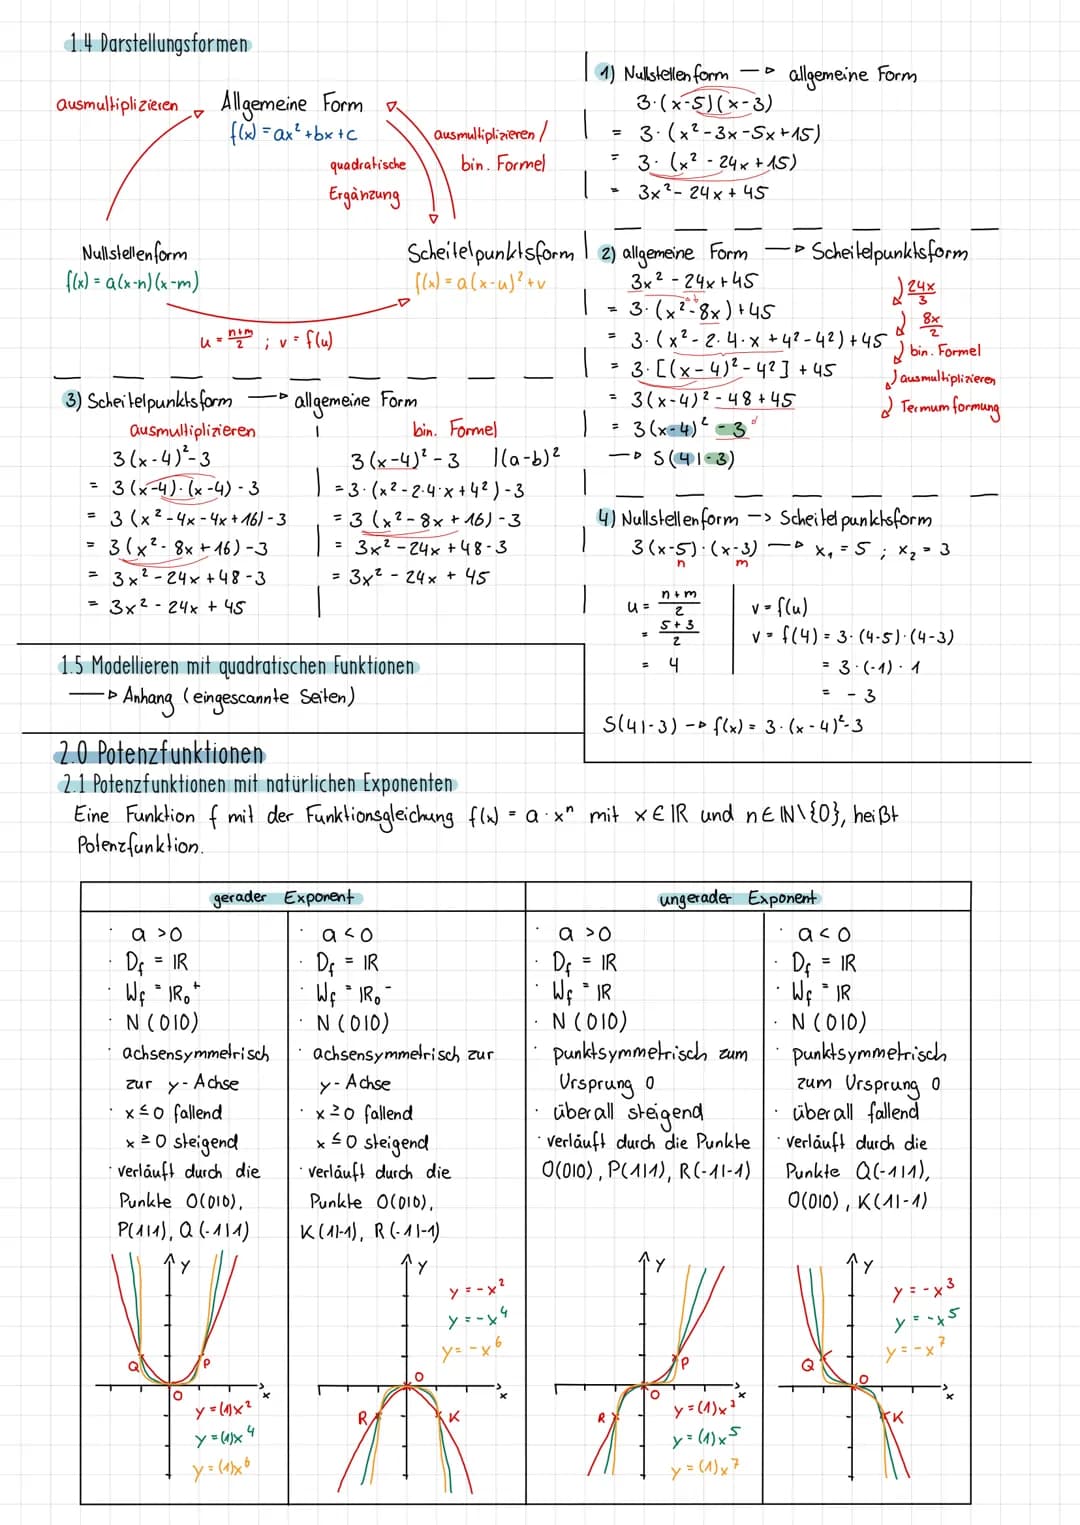 1.4 Darstellungsformen
ausmultiplizieren
Allgemeine Form
f(x) = ax² + bx + c
ausmultiplizieren /
bin. Formel
quadratische
Ergänzung
Nullstellenform
f(x) = a(x-n)(x-m)
Scheitelpunktsform
f(x) = a(x-u)² + v
u = (n+m)/2 ; v = f(u)
1) Nullstellenform → allgemeine Form
3·(x-5)(x-3)
= 3·(x²-3x-5x+15)
= 3·(x² - 24x + 15)
= 3x² - 24x + 45
2) allgemeine Form → Scheitelpunktsform
3x² - 24x + 45
= 3·(x² - 8x) + 45
= 3·(x² - 2·4·x + 4² - 4²) + 45
= 3·[(x-4)² - 4²] + 45
= 3(x-4)² - 48 + 45
= 3(x-4)² - 3
→ S(4|-3)
24x/3
8x/2
bin. Formel
ausmultiplizieren
Termumformung
3) Scheitelpunktsform → allgemeine Form
ausmultiplizieren
3(x-4)² - 3
= 3(x-4)·(x-4) - 3
= 3(x² - 4x - 4x + 16) - 3
= 3(x² - 8x + 16) - 3
= 3x² - 24x + 48 - 3
= 3x² - 24x + 45
bin. Formel
3(x-4)² - 3 |(a-b)²
= 3·(x² - 2·4·x + 4²) - 3
= 3(x² - 8x + 16) - 3
= 3x² - 24x + 48 - 3
= 3x² - 24x + 45
4) Nullstellenform -> Scheitelpunktsform
3(x-5)·(x-3) → x₁ = 5 ; x₂ = 3
n m
u = (n+m)/2
= (5+3)/2
= 4
v = f(u)
v = f(4) = 3·(4-5)·(4-3)
= 3·(-1)·1
= -3
S(4|-3) → f(x) = 3·(x-4)² - 3
1.5 Modellieren mit quadratischen Funktionen
→ Anhang (eingescannte Seiten)
2.0 Potenzfunktionen
2.1 Potenzfunktionen mit natürlichen Exponenten
Eine Funktion f mit der Funktionsgleichung f(x) = a·xⁿ mit x∈ℝ und n∈ℕ\{0}, heißt
Potenzfunktion.
gerader Exponent
ungerader Exponent
· a > 0
· Df = ℝ
· Wf = ℝ₀⁺
· N(0|0)
· achsensymmetrisch
zur y-Achse
· x ≤ 0 fallend
x ≥ 0 steigend
· verläuft durch die
Punkte O(0|0),
P(1|1), Q(-1|1)
y
Q
P
O
x
y = (1)x²
y = (1)x⁴
y = (1)x⁶
· a < 0
· Df = ℝ
· Wf = ℝ₀⁻
· N(0|0)
· achsensymmetrisch zur
y-Achse
· x ≥ 0 fallend
x ≤ 0 steigend
· verläuft durch die
Punkte O(0|0),
K(1|-1), R(-1|-1)
y
y = -x²
y = -x⁴
y = -x⁶
O
x
R
K
· a > 0
· Df = ℝ
· Wf = ℝ
· N(0|0)
· punktsymmetrisch zum
Ursprung 0
· überall steigend
· verläuft durch die Punkte
O(0|0), P(1|1), R(-1|-1)
y
P
O
x
R
y = (1)x³
y = (1)x⁵
y = (1)x⁷
· a < 0
· Df = ℝ
· Wf = ℝ
· N(0|0)
· punktsymmetrisch
zum Ursprung 0
· überall fallend
· verläuft durch die
Punkte Q(-1|1),
O(0|0), K(1|-1)
y
y = -x³
y = -x⁵
y = -x⁷
Q
O
x
K